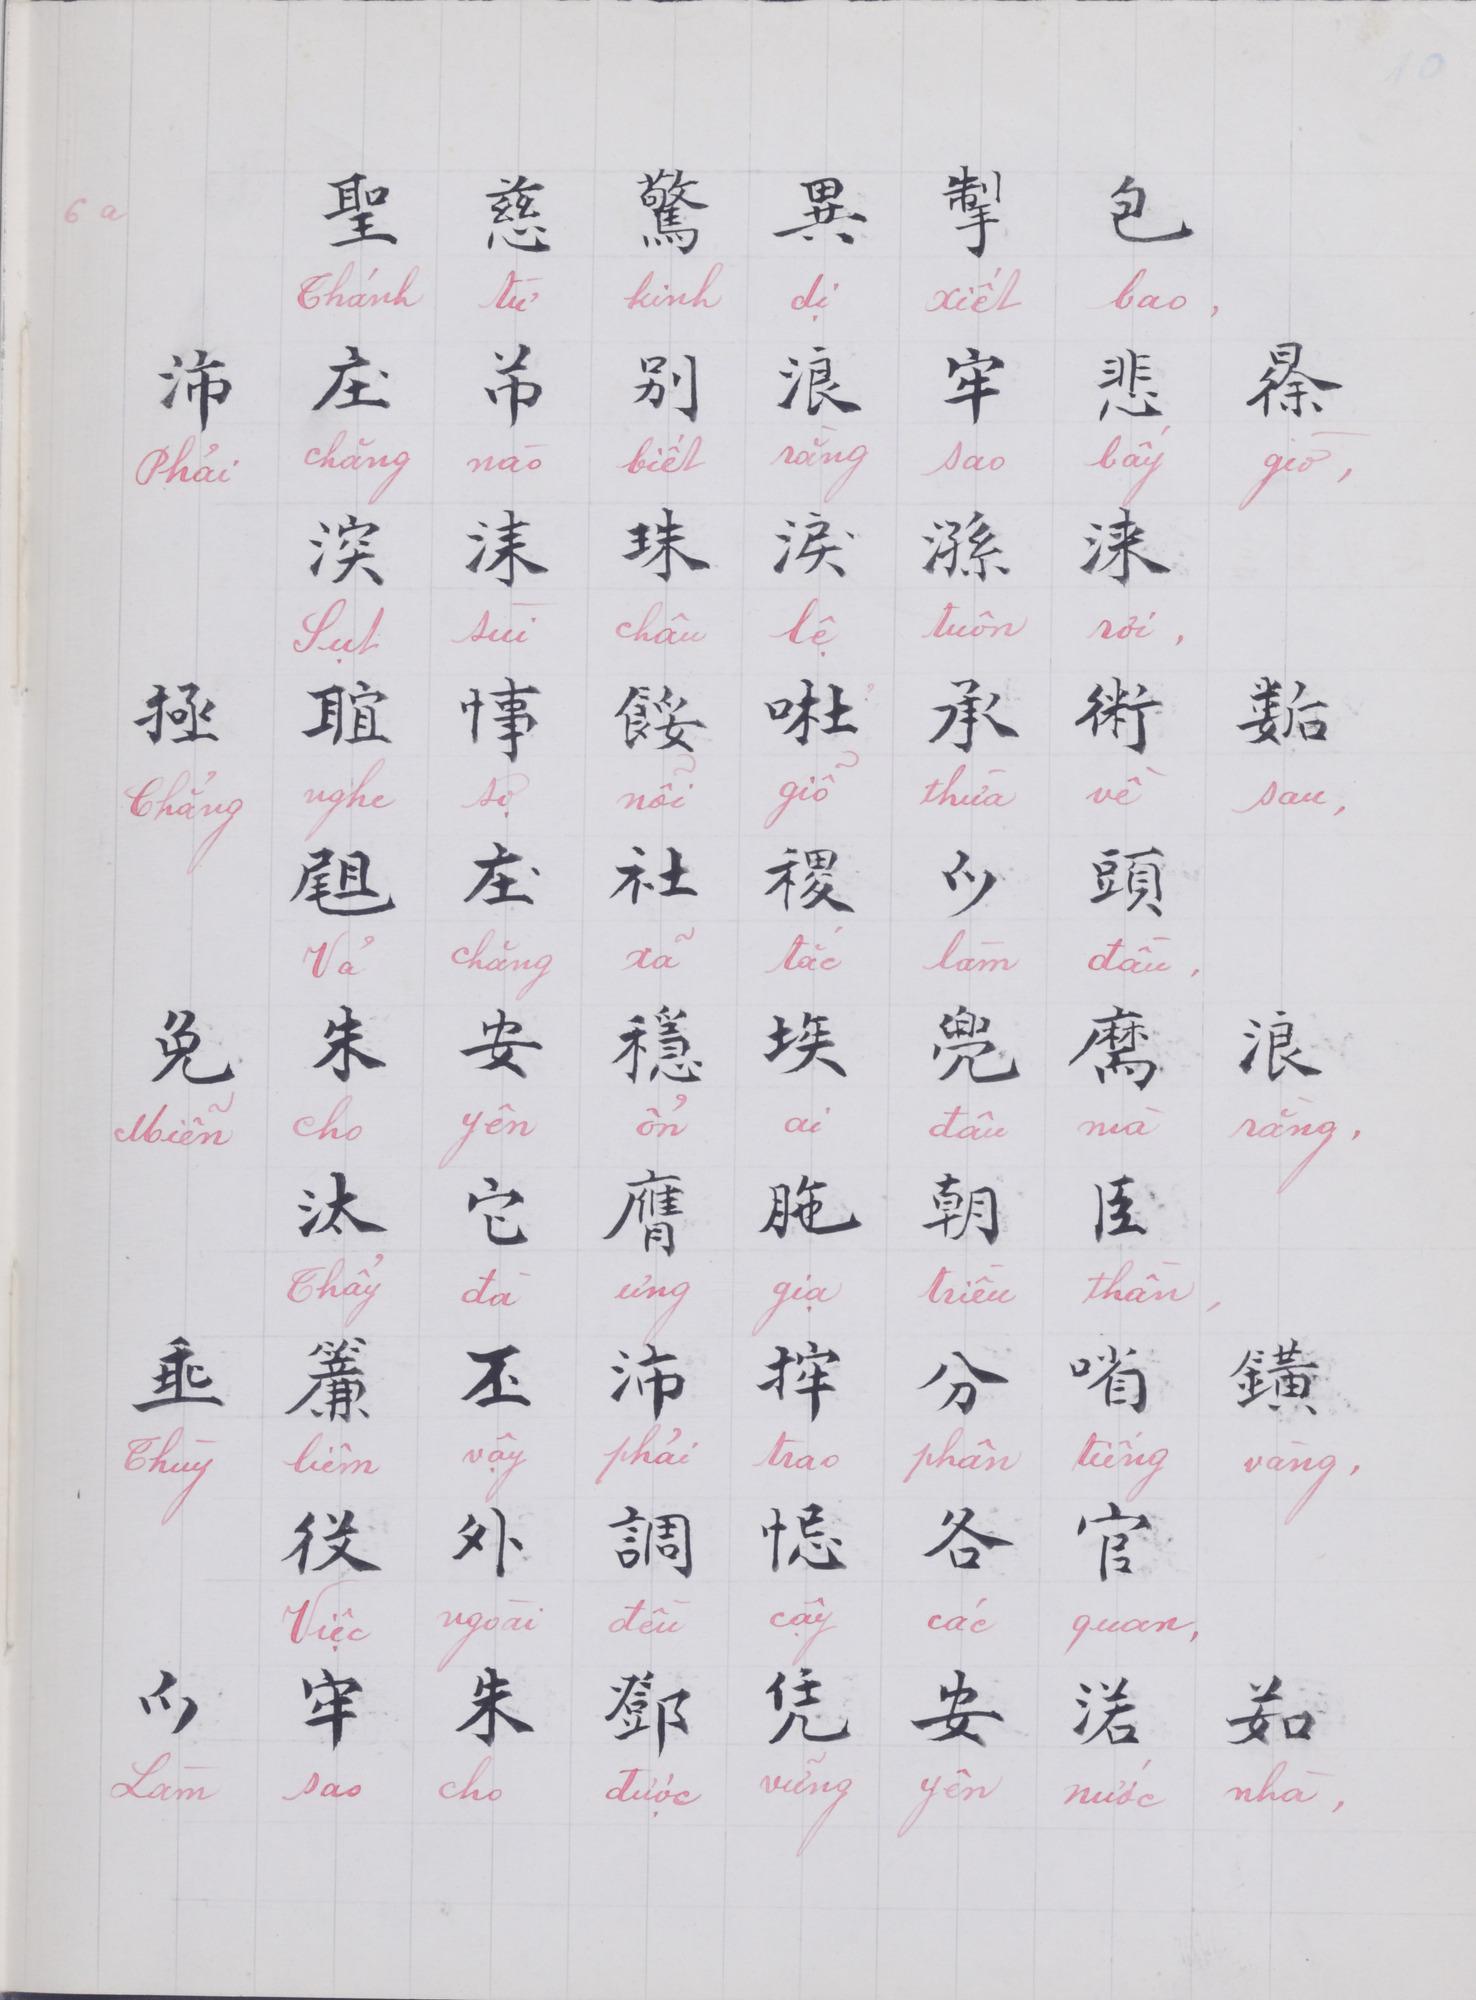 10
6a
聖 慈 驚 異 掣 包
Thánh từ kinh dị xiết bao,
沛 庄 吊 別 浪 牢 悲
Phải chăng nào biết rằng sao bấy giờ,
湥 洡 珠 淚 㴋 淶
Sụt sùi châu lệ tuôn rơi,
極 𦖑 餒 承 術
Chẳng nghe sự nỗi giỗ thừa về sau,
庄 社 稷 頭
Vả chăng xã tắc làm đầu,
免 朱 安 穩 埃 兜 麿 浪
Miễn cho yên ổn ai đâu mà rằng,
汰 它 膺 朝 臣
Thẩy đà ưng gịa triều thần,
垂 簾 丕 沛 分 㗂 鐄
Thùy liêm vậy phải trao phân tiếng vàng,
役 外 調 各 官
Việc ngoài đều cậy các quan,
牢 朱 鄧 凭 安 渃 茹
Làm sao cho được vững yên nước nhà,